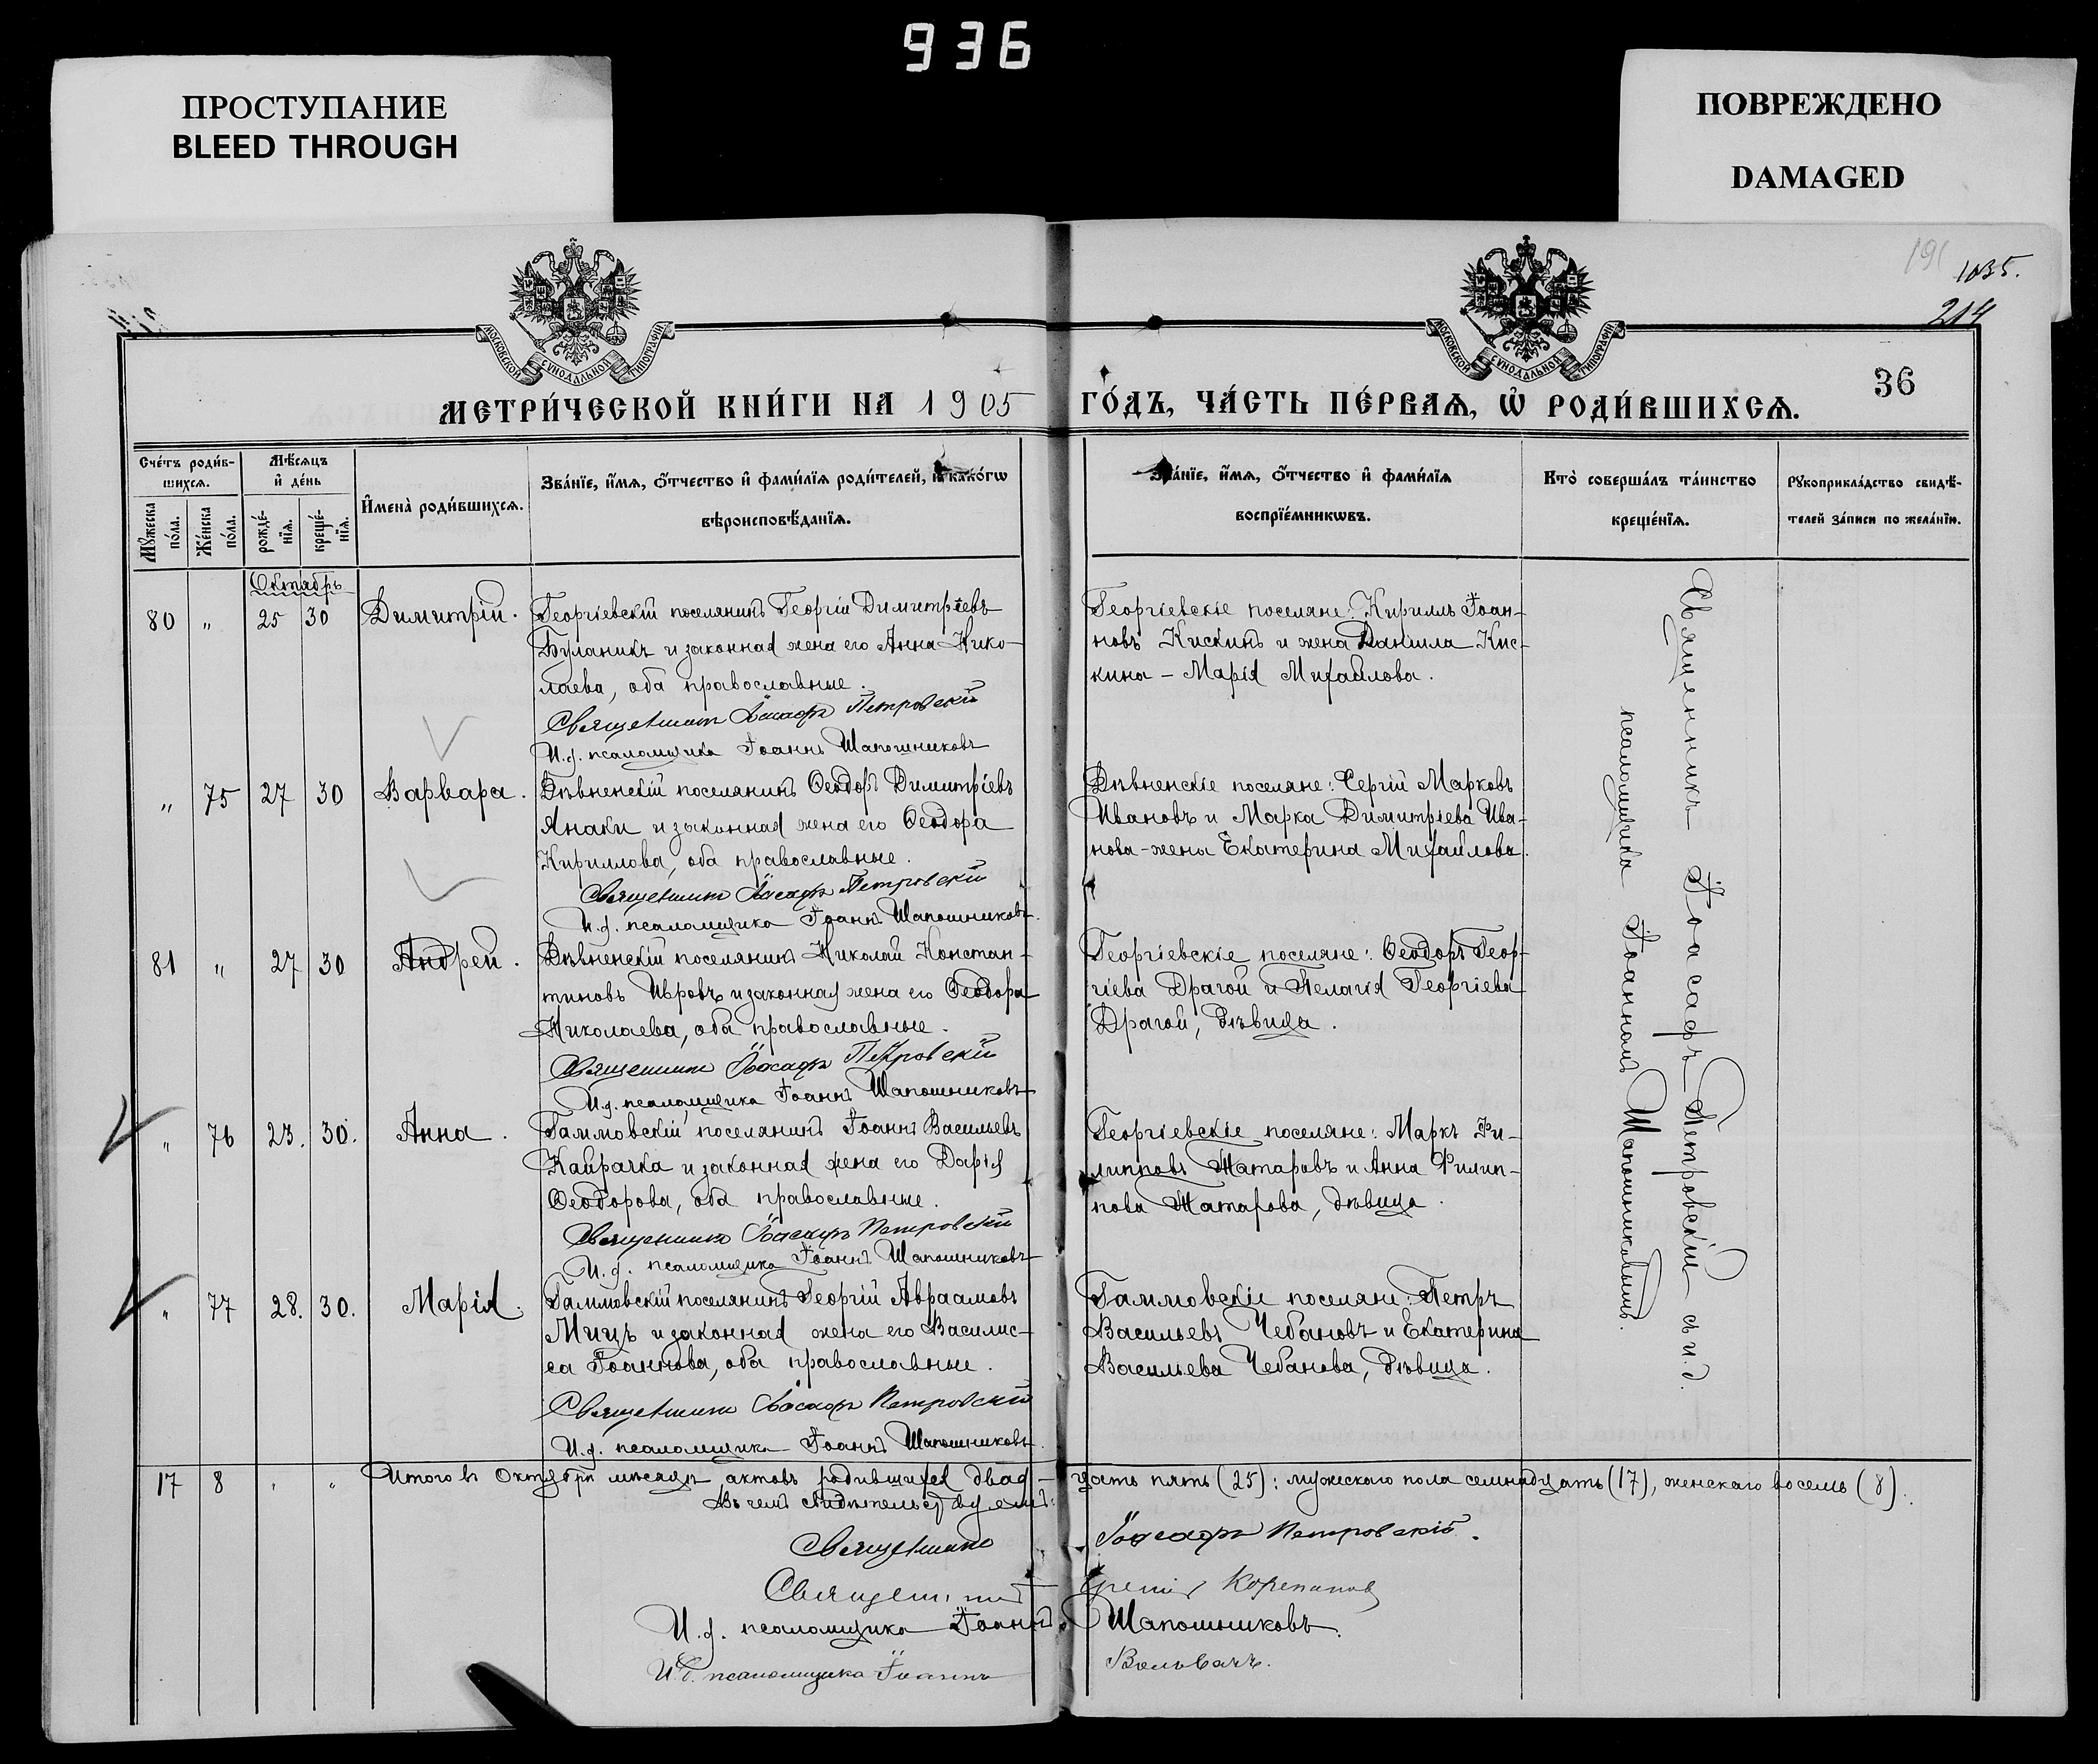 936
ПРОСТУПАНИЕ
BLEED THROUGH
ПОВРЕЖДЕНО
DAMAGED
191
1035.
214
МОСКОВСКОЙ СѴНОДАЛЬНОЙ ТИПОГРАФІИ
МОСКОВСКОЙ СѴНОДАЛЬНОЙ ТИПОГРАФІИ
36
МЕТРИ́ЧЕСКОЙ КНИ́ГИ НА 1905 ГО́ДЪ, ЧА́СТЬ ПЕ́РВАѦ, Ѽ РОДИ́ВШИХСѦ.
Сче́тъ роди́в-
шихсѧ.
Мꙋ́жеска
по́ла.
Же́нска
по́ла.
Мѣ́сѧцъ
и҆ де́нь
рожде́-
нїѧ.
креще́-
нїѧ.
И҆мена̀ роди́вшихсѧ.
Зва́нїе, и҆́мѧ, ѻ҆́тчество и҆ фами́лїѧ роди́телей, и҆ како́гѡ
вѣроисповѣ́данїѧ.
Зва́нїе, и҆́мѧ, ѻ҆́тчество и҆ фами́лїѧ
воспрїе́мникѡвъ.
Кто̀ соверша́лъ та́инство
креще́нїѧ.
Рꙋкоприкла́дство свидѣ́-
телей за́писи по жела́нїю.
Октябрь
80 „ 25 30 Димитрій. Георгіевскій поселянинъ Георгій Димитріевъ
Буланикъ и законная жена его Анна Нико-
лаева, оба православные.
Священникъ Іоасафъ Петровскій
И.д. псаломщика Іоаннъ Шапошниковъ
Георгіевскіе поселяне: Кириллъ Іоан-
новъ Кискинъ и жена Даніила Кис-
кина – Марія Михайлова.
„ 75 27 30 Варвара. Дѣвненскій поселянинъ Ѳеодоръ Димитріевъ
Янаки и законная жена его Ѳеодора
Кириллова, оба православные.
Священникъ Іоасафъ Петровскій
И.д. псаломщика Іоаннъ Шапошниковъ.
Дѣвненскіе поселяне: Сергій Марковъ
Ивановъ и Марка Димитріева Ива-
нова-жена Екатерина Михайлова.
81 „ 27 30 Андрей. Дѣвненскій поселянинъ Николай Констан-
тиновъ Ивровъ и законная жена его Ѳеодора
Николаева, оба православные.
Священникъ Іоасафъ Петровскій
И.д. псаломщика Іоаннъ Шапошниковъ
Георгіевскіе поселяне: Ѳеодоръ Геор-
гіева Драгой и Пелагія Георгіева
Драгой, дѣвица.
„ 76 23. 30. Анна. Гаммовскій поселянинъ Іоаннъ Васильевъ
Кайрачка и законная жена его Дарія
Ѳеодорова, оба православные.
Священникъ Іоасафъ Петровскій
И.д. псаломщика Іоаннъ Шапошниковъ
Георгіевскіе поселяне: Маркъ Фи-
липповъ Татаровъ и Анна Филип-
пова Татарова, дѣвица.
„ 77 28. 30. Марія. Гаммовскій поселянинъ Георгій Авраамовъ
Мицъ и законная жена его Василис-
са Іоаннова, оба православные.
Священникъ Іоасафъ Петровскій
И.д. псаломщика Іоаннъ Шапошниковъ.
Гаммовскіе поселяне: Петръ
Васильевъ Чебановъ и Екатерина
Васильева Чебанова, дѣвица.
Священникъ Іоасафъ Петровскій съ и. д.
псаломщика Іоанномъ Шапошниковымъ.
17 8 „ „ Итого въ Октябрѣ мѣсяцѣ актовъ родившихся двад-цать пять (25): мужескаго пола семнадцать (17), женскаго восемь (8).
Въ чемъ свидѣтельствуемъ:
Священникъ Іоасафъ Петровскій.
Священникъ Корепановъ
И.д. псаломщика Іоаннъ Шапошниковъ.
И.д. псаломщика Іоаннъ Воловачъ.